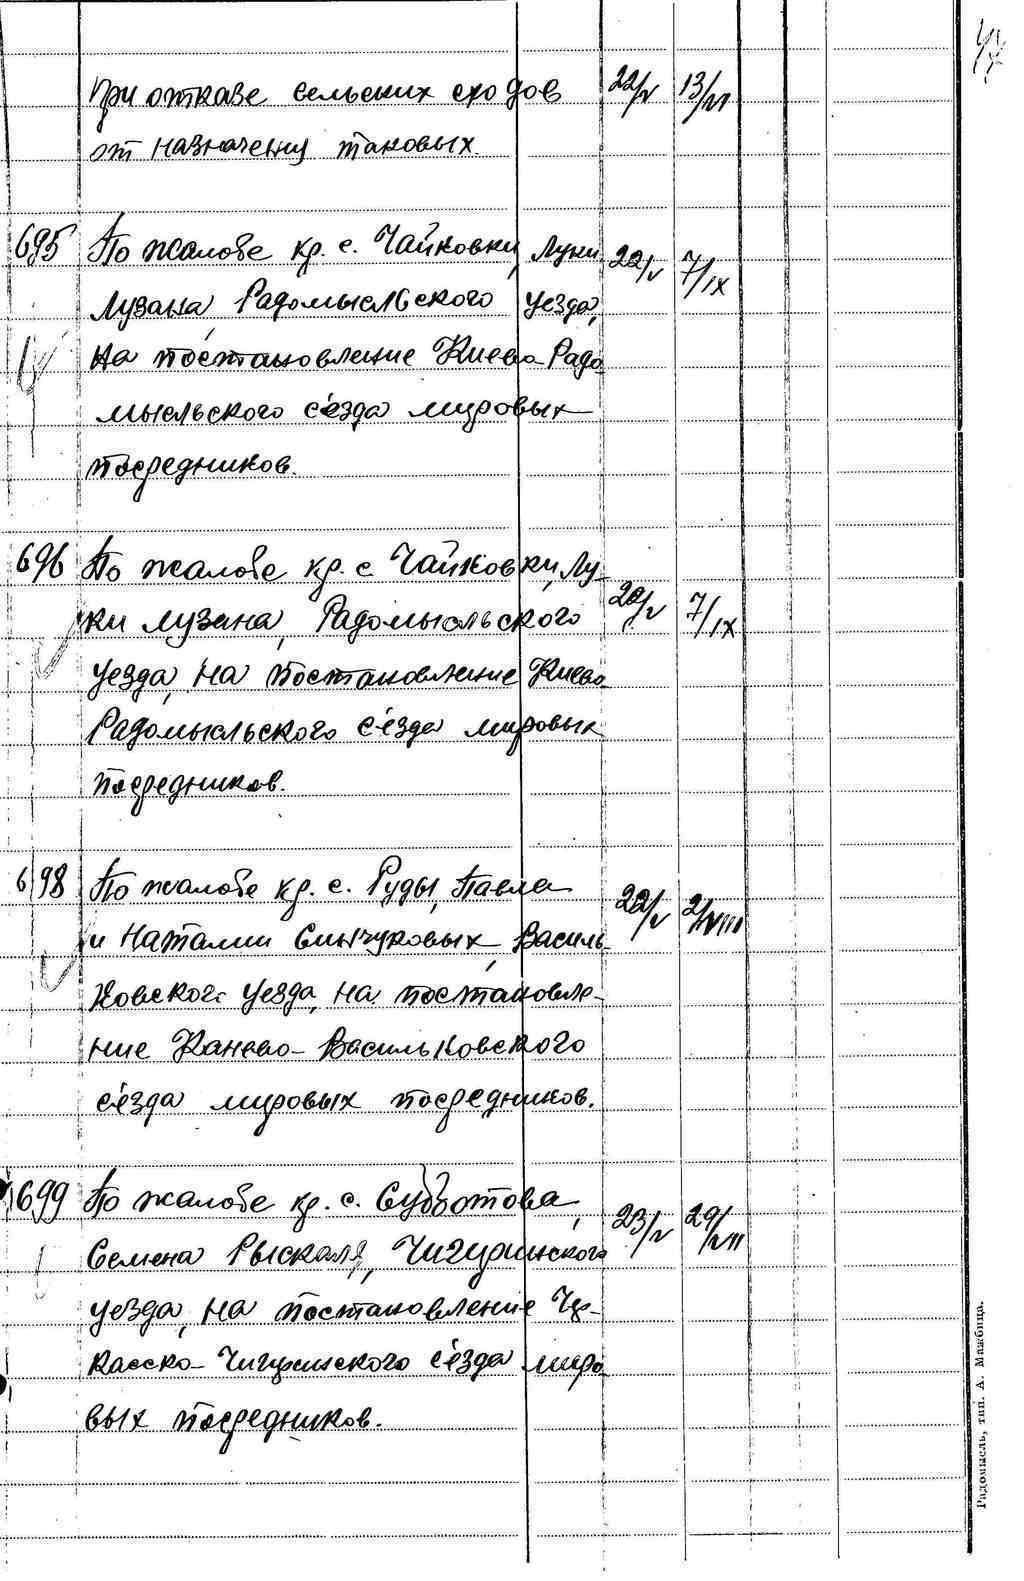 при отказе сельских сходов 22/V 13/VI
от назначения таковых.
695 По жалобе кр. с. Чайковки, Луки 22/V 7/IX
Лузана, Радомысльского уезда,
на постановление Киево-Радо
мысльского с'езда мировых
посредников.
696 По жалобе кр. с. Чайковки, Лу-
ки Лузана, Радомысльского 22/V 7/IX
уезда, на постановление Киево-
Радомысльского с'езда мировых
посредников.
698 По жалобе кр. с. Руды, Павла 22/V 2/VIII
и Наталии Синчуковых, Василь-
ковского уезда, на постановле-
ние Канево-Васильковского
с'езда мировых посредников.
699 По жалобе кр. с. Субботова, 23/V 29/VII
Семена Рыскаля, Чигиринского
уезда, на постановление Чер-
касско-Чигиринского с'езда миро
вых посредников.
Радомысль, тип. А. Мажбица.